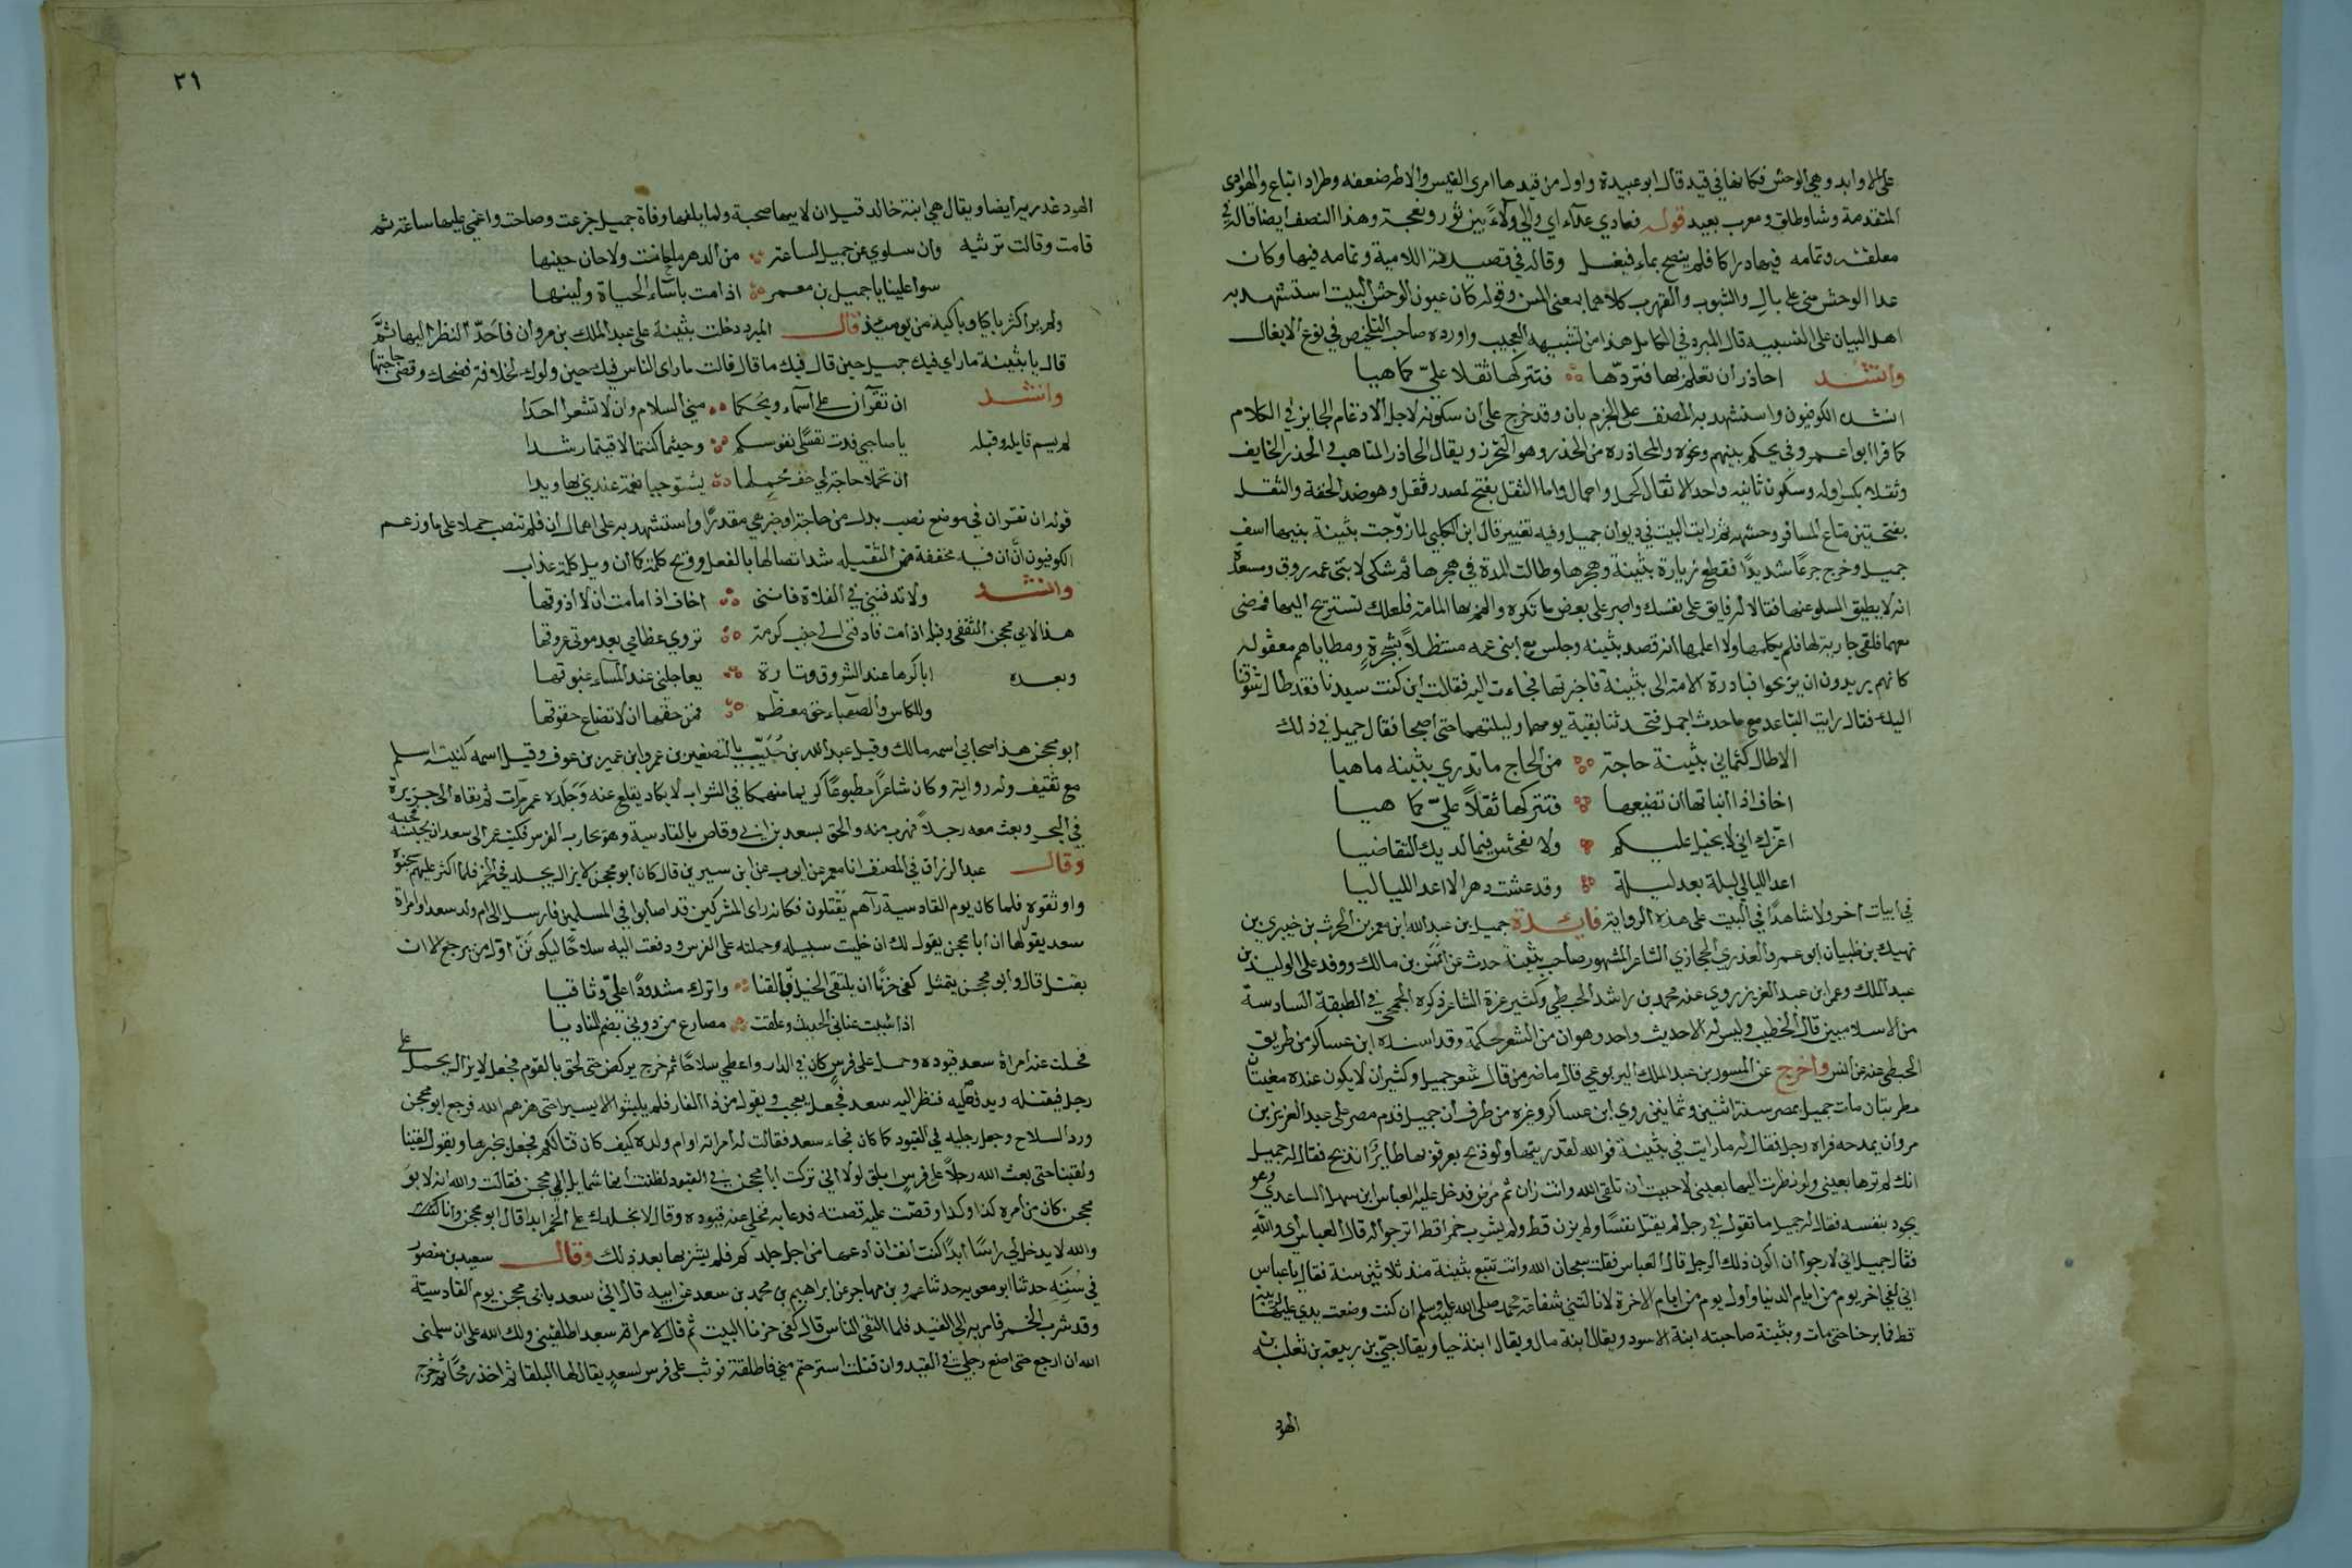 على الاوابد وهي الوحش فكانها في قيد قال ابو عبيدة واول من قيدها امرئ القيس والاطر ضعفه وطراد اتباع والهوادي
المتقدمة وشاو طلق ومعرب بعيد قوله فعادي عدآء اي والي ولآءً بين ثور ونعجة وهذا النصف ايضا قاله في
معلقته وتمامه فيها دراكا فلم ينضح بماء فيغسل وقاله في قصيدته اللامية وتمامه فيها وكان
عدا الوحش مني على بال والشبوب والقرهب كلاهما بمعنى المسن وقوله كان عيون الوحش البيت استشهد به
اهل البيان على التشبيه قال المبرد في الكامل هذا من التشبيه العجيب واورده صاحب التلخيص في نوع الايغال
وانشد احاذر ان تعلم بها فتردّها فتتركها ثقلا عليّ كما هيا
انشده الكوفيون واستشهد به المصنف على الجزم بان وقد خرج على ان سكونه لاجل الادغام الجايز في الكلام
كما قرا ابو عمرو في يحكم بينهم ونحوه والمحاذرة من الحذر وهو التحرز ويقال الحاذر المتاهب والحذر الخايف
وثقلا بكسر اوله وسكون ثانيه واحد الاثقال كحمل واحمال واما الثقل بفتح لمصدر ثقل وهو ضد الخفة والثقل
بفتحتين متاع المسافر وحشمه ثم رايت البيت في ديوان جميل وفيه تغيير قال ابن الكلبي لما زوّجت بثينة بنيها اسف
جميل وخرج جزعًا شديدًا فقطع زيارة بثينة وهجرها وطالت المدة في هجرها ثم شكى لابني عمه روق ومسعدة
انه لا يطيق السلو عنها فقالا له فابق على نفسك واصبر على بعض ما تكره والمم بها المامة فلعلك تستريح اليها فمضى
معهما فلقي جارية لها فلم يكلمها ولا اعلمها انه قصد بثينة وجلس مع ابني عمه مستظلاً بشجرةٍ ومطاياهم معقوله
كانهم يريدون ان يريحوا فبادرة الامة الى بثينة فاخبرتها فجاءت اليه فقالت اين كنت سيدنا فقد طال شوقنا
اليك فقال رايت التباعد مع ما حدث اجمل فتحدثنا بقية يومهما وليلتهما حتى اصبحا فقال جميل في ذلك
الا طال كتماني بثينة حاجة من الحاج ما تدري بثينة ما هيا
اخاف اذا انباتها ان تضيعها فتتركها ثقلاً عليّ كما هيا
اغرّك اني لا بخيل عليكم ولا مفحش فيما لديك التقاضيا
اعد الليالي ليلة بعد ليلة وقد عشت دهرا لا اعد اللياليا
في ابيات اخر ولا شاهدًا في البيت على هذه الرواية فايدة جميل بن عبد الله ابن معمر بن الحرث بن خيبري بن
نهيك بن ظبيان ابو عمرو العذري الحجازي الشاعر المشهور صاحب بثينة حدث عن انس بن مالك ووفد على الوليد بن
عبد الملك وعمر ابن عبد العزيز روي عنه محمد بن راشد الحبطي وكثير عزة الشاعر ذكره الجمحي في الطبقة السادسة
من الاسلاميين قال الخطيب وليس له الا حديث واحد وهو ان من الشعر حكمة وقد اسنده ابن عساكر من طريق
الحبطي عنه عن انس واخرج عن المسور بن عبد الملك اليربوعي قال ما ضر من قال شعر جميل وكثير ان لا يكون عنده مغنيتان
مطربتان مات جميل بمصر سنة اثنتين وثمانين روي ابن عساكر وغيره من طرق ان جميل قدم مصر على عبد العزيز بن
مروان يمدحه فراه رجل فقال له ما رايت في بثينة فوالله لقد رايتها ولو ذبح بعرقوبها طايرًا نذبح فقال له جميل
انك لم ترها بعيني ولو نظرت اليها بعيني لاحببت ان تلقى الله وانت زان ثم مرض فدخل عليه العباس ابن سهل الساعدي وهو
يجود بنفسه فقال له جميل ما تقول في رجل لم يقتل نفسًا ولم يزن قط ولم يشرب خمرا قط اترجو له قال العباس اي والله
فقال جميل اني لارجوا ان اكون ذلك الرجل قال العباس فقلت سبحان الله وانت تتبع بثينة منذ ثلاثين سنة فقال يا عباس
اني لفي اخر يوم من ايام الدنيا واول يوم من ايام الاخرة لا نالتني شفاعة محمد صلى الله عليه وسلم ان كنت وضعت يدي عليها لريبة
قط فما برحنا حتى مات وبثينة صاحبته ابنة الاسود ويقال ابنة مال ويقال ابنة حيا ويقال حيّ بن ربيعة بن ثعلبة بن
الهود
٢٦
الهود عذرية ايضا ويقال هي ابنة خالد قيل ان لابيها صحبة ولما بلغها وفاة جميل جزعت وصاحت واغمي عليها ساعة ثم
قامت وقالت ترثيه وان سلوي عن جميل لساعة من الدهر ما حانت ولا حان حينها
سوا علينا يا جميل بن معمر اذا مت باساء الحياة ولينها
ولم ير اكثر باكيا وباكية من يوميذ قال المبرد دخلت بثينة على عبد الملك بن مروان فاحدّ النظر اليها ثمّ
قال يا بثينة ما راي فيك جميل حين قال فيك ما قال قالت ما راى الناس فيك حين ولوك الخلافة فضحك وقضى حاجتها
وانشد ان تقرآن على اسماء ويحكما مني السلام وان لا تشعرا احدا
لم يسم قايله وقبله يا صاحبي فدت نفسي نفوسكما وحيثما كنتما لاقيتما رشدا
ان تحملا حاجة لي خف محملها يستوجبا نعمة عندي بها ويدا
قوله ان تقران في موضع نصب بدل من حاجة او خبر هي مقدرًا واستشهد به على اهمال ان فلم تنصب حملا على ما وزعم
الكوفيون انّ ان فيه مخففة من الثقيلة شذ اتصالها بالفعل
وانشد ولا تدفنني في الفلاة فانني اخاف اذا ما مت ان لا اذوقها
هذا لابي محجن الثقفي وقبله اذا مت فادفني الى جنب كرمة تروي عظامي بعد موتي عروقها
وبعده اباكرها عند الشروق وتارة يعاجلني عند المسآء غبوقها
وللكاس والصهباء حق معظم فمن حقها ان لا تضاع حقوقها
ابو محجن هذا صحابي اسمه مالك وقيل عبد الله بن حُبَيّب بالتصغير بن عمرو ابن عمير بن عوف وقيل اسمه كنيته اسلم
مع ثقيف وله رواية وكان شاعرًا مطبوعًا كريما منهمكا في الشراب لا يكاد يقلع عنه وَجَلَده عمر مرّات ثم نفاه الى جزيرة
في البحر وبعث معه رجلاً فهرب منه والحق بسعد بن ابي وقاص بالقادسية وهو يحارب الفرس فكتب عمر الى سعد ان يحبسه فحبسه
وقال عبد الرزاق في المصنف انا معمر عن ايوب عن ابن سيرين قال كان ابو محجن لا يزال يجلد في الخمر فلما اكثر عليهم سجنوه
واوثقوه فلما كان يوم القادسية رآهم يقتلون فكانه راى المشركين قد اصابوا في المسلمين فارسل الى ام ولد سعد او امراة
سعد يقول لها ان ابا محجن يقول لك ان خليت سبيله وحملته على الفرس ودفعت اليه سلاحًا ليكوننّ اوّل من يرجع الا ان
يقتل قال وابو محجن يتمثل كفى حزنًا ان يلتقي الخيل بالقنا واترك مشدودًا عليّ وثاقيا
اذا شيت عناني الحديث وغلقت مصارع من دوني بضم المناديا
فحلت عنه امراة سعد قيوده وحمل على فرسٍ كان في الدار واعطي سلاحًا ثم خرج يركض حتى لحق بالقوم فجعل لا يزال يحمل على
رجل فيقتله ويدقّ صلبه فنظر اليه سعد فجعل يعجب ويقول من ذا الفارس فلم يلبثوا الا يسيرا حتى هزمهم الله فرجع ابو محجن
ورد السلاح وجعل رجليه في القيود كما كان فجاء سعد فقالت له امراته او ام ولده كيف كان قتالكم فجعل يخبرها ويقول لقينا
ولقينا حتى بعث الله رجلاً على فرسٍ ابلق لولا اني تركت ابا محجن في القيود لظننت انها شمايل ابي محجن فقالت والله انه لابو
محجن كان من امره كذا وكذا وقصّت عليه قصته فدعا به فخلى عنه قيوده وقال لا نجلدك على الخمر ابدا قال ابو محجن وانا
والله لا يدخل لي راسًا ابدًا كنت انف ان ادعها من اجل جلدكم فلم يشربها بعد ذلك وقال سعيد بن منصور
في سُنَنِه حدثنا ابو معويه حدثنا عمرو بن مهاجر عن ابراهيم بن محمد بن سعد عن ابيه قال اتي سعد بابي محجن يوم القادسية
وقد شرب الخمر فامر به الى القيد فلما التقى الناس قال كفى حزنا البيت ثم قال لامراة سعد اطلقيني ولك الله على ان سلمني
الله ان ارجع حتى اضع رجلي في القيد وان قتلت استرحتم مني فاطلقته فوثب على فرس لسعدٍ يقال لها البلقا ثم اخذ رمحًا ثم خرج